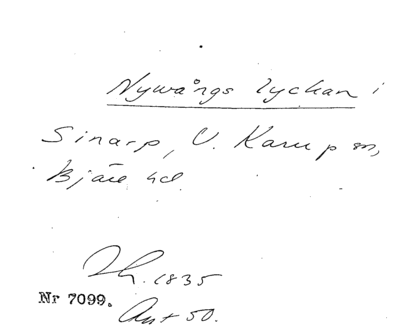 Nywångs lyckan i
Sinarp, V. Karup sn,
Bjäre hd.
Th. 1835
Nr 7099.
Ant 50.